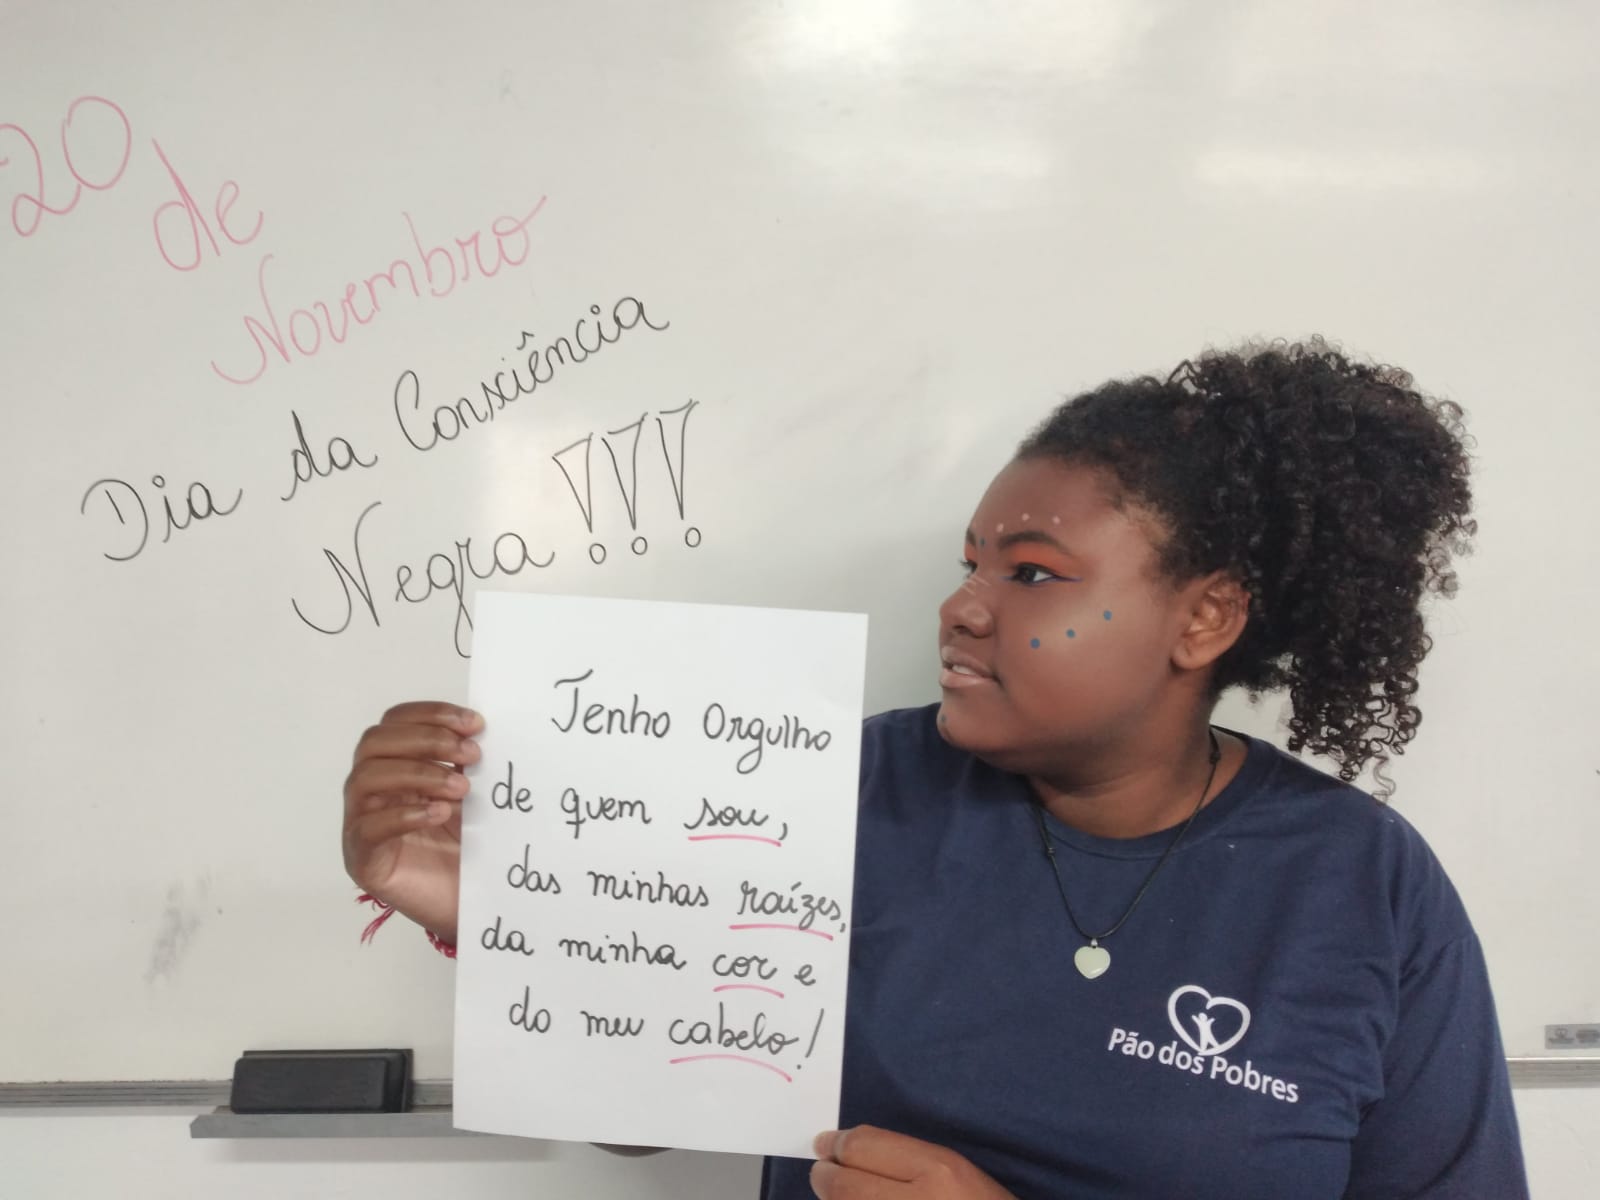 20
de
Novembro
Dia da Consciência
Negra!!!
Tenho Orgulho
de quem sou,
das minhas raízes,
da minha cor e
do meu cabelo!
Pão dos Pobres